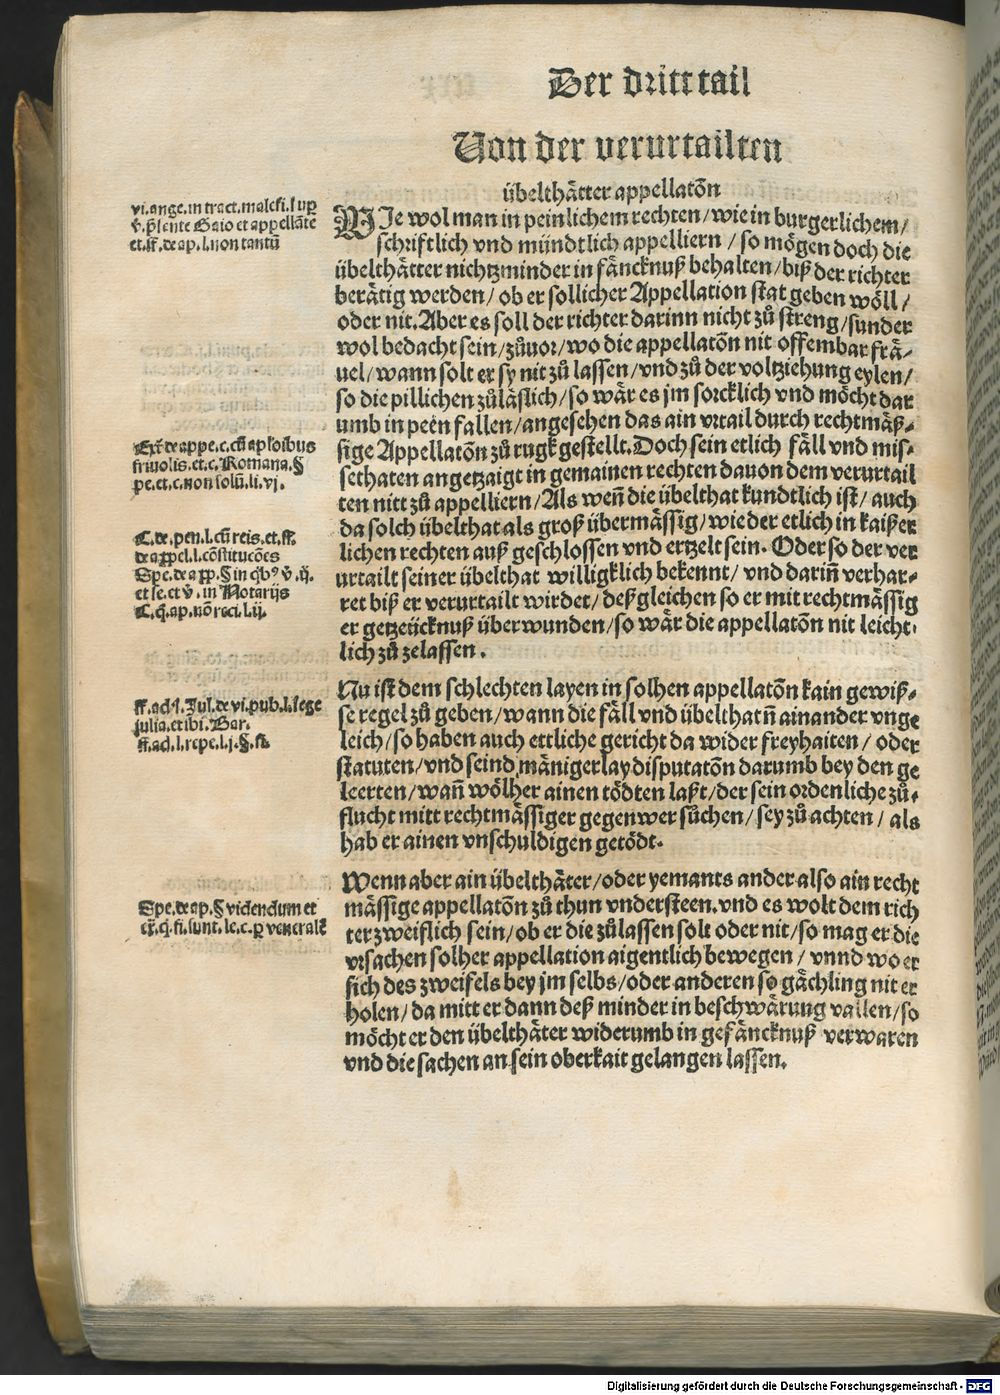 Der dritt tail
Von der verurtailten
übelthätter appellatõn
vi. ange. in tract. malefi. ſ up
et ff. de ap. l. non tantũ
WJe wol man in peinlichem rechten/ wie in burgerlichem/
ſchriftlich vnd mündtlich appelliern / ſo mögen doch die
übelthätter nichtzminder in fäncknuß behalten/ biß der richter
berätig werden/ ob er ſollicher Appellation ſtat geben wöll /
oder nit. Aber es ſoll der richter darinn nicht zů ſtreng/ ſunder
wol bedacht ſein/ zůuor/ wo die appellatõn nit offembar frä-
uel/ wann ſolt er ſy nit zů laſſen/ vnd zů der voltziehung eylen/
ſo die pillichen zůläſlich/ ſo wär es jm ſorcklich vnd möcht dar
umb in peen fallen/ angeſehen das ain vrtail durch rechtmäß-
ſige Appellatõn zů rugk geſtellt. Doch ſein etlich fäll vnd miſ-
ſethaten angetzaigt in gemainen rechten dauon dem verurtail
ten nitt zů appelliern/ Als weñ die übelthat kundtlich iſt/ auch
da ſolch übelthat als groß übermäſſig/ wie der etlich in kaißer
lichen rechten auß geſchloſſen vnd ertzelt ſein. Oder ſo der ver
urtailt ſeiner übelthat willigklich bekennt/ vnd dariñ verhar-
ret biß er verurtailt wirdet/ deßgleichen ſo er mit rechtmäſſig
er getzeücknuß überwunden/ ſo wär die appellatõn nit leicht-
lich zů zelaſſen.
friuolis. et. c. Romana. §
pe. et. c. non ſolũ. li. vj.
C. de. pen. l. cũ reis. et. ff.
de appel. l. cõſtitucões
et ſe. et v̊. in Notarijs
C. q̃. ap. nõ reci. l. ij.
Nu iſt dem ſchlechten layen in ſolhen appellatõn kain gewiß-
ſe regel zů geben/ wann die fäll vnd übelthatñ ainander vnge
leich/ ſo haben auch ettliche gericht da wider freyhaiten / oder
ſtatuten/ vnd ſeind mänigerlay diſputatõn darumb bey den ge
leerten/ wañ wölher ainen tödten laßt/ der ſein ordenliche zů-
flucht mitt rechtmäſſiger gegenwer ſůchen/ ſey zů achten / als
hab er ainen vnſchuldigen getödt.
ff. ad. l. Jul. de vi. pub. l. lege
julia. et ibi. Bar.
ff. ad. l. repe. l. j. §. fi.
Wenn aber ain übelthäter/ oder yemants ander alſo ain recht
mäſſige appellatõn zů thun vnderſteen. vnd es wolt dem rich
ter zweiflich ſein/ ob er die zůlaſſen ſolt oder nit/ ſo mag er die
vrſachen ſolher appellation aigentlich bewegen / vnnd wo er
ſich des zweifels bey jm ſelbs/ oder anderen ſo gächling nit er
holen/ da mitt er dann deß minder in beſchwärung vallen/ ſo
möcht er den übelthäter widerumb in gefäncknuß verwaren
vnd die ſachen an ſein oberkait gelangen laſſen.
Spe. de ap. § videndum et
Digitalisierung gefördert durch die Deutsche Forschungsgemeinschaft - DFG